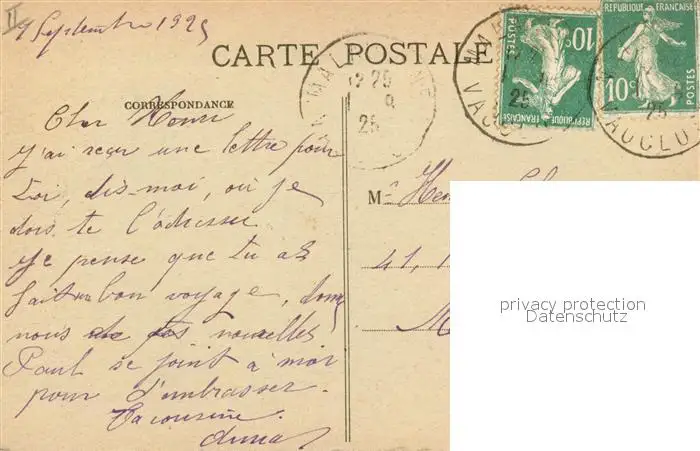 II
9 Septembre 1925
CARTE POSTALE
CORRESPONDANCE
Cher Henri
J'ai reçu une lettre pour
toi, dis-moi, où je
dois te l'adresser
Je pense que tu as
fait un bon voyage, donne
nous de tes nouvelles
Paul se joint à moi
pour t'embrasser.
Ta cousine.
M
41, 
RÉPUBLIQUE FRANÇAISE
POSTES
10c
RÉPUBLIQUE FRANÇAISE
10c
POSTES
VAUCLUSE
25
privacy protection
Datenschutz